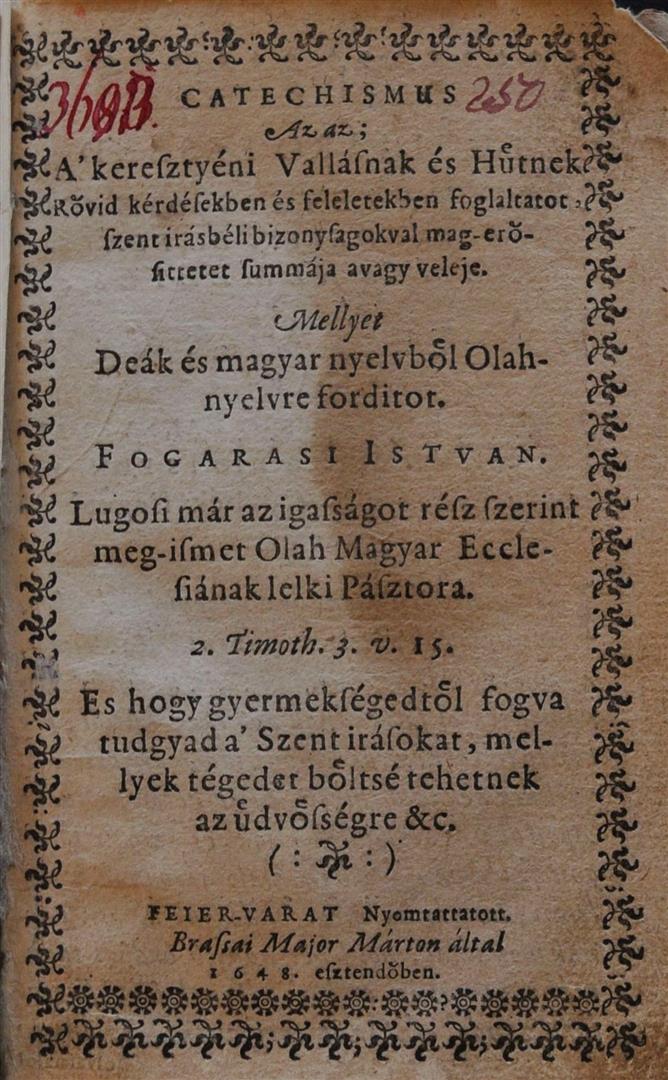 36913. CATECHISMUS 250
Az az;
A' kereſztyéni Valláſnak és Hůtnek
Rŏvid kérdéſekben és feleletekben foglaltatot,
ſzent irásbéli bizonyſagokval mag-erŏ-
ſittetet ſummája avagy veleje.
Mellyet
Deák és magyar nyelvbo̊l Olah-
nyelvre forditot.
FOGARASI ISTVAN.
Lugoſi már az igaſságot réſz ſzerint
meg-iſmet Olah Magyar Eccle-
ſiának lelki Páſztora.
2. Timoth. 3. v. 15.
Es hogy gyermekſégedto̊l fogva
tudgyad a' Szent iráſokat, mel-
lyek tégedet bo̊ltsé tehetnek
az ůdvo̊ſségre &c.
(: :)
FEIER-VARAT Nyomtattatott.
Braſsai Major Márton által
1648. eſztendŏben.